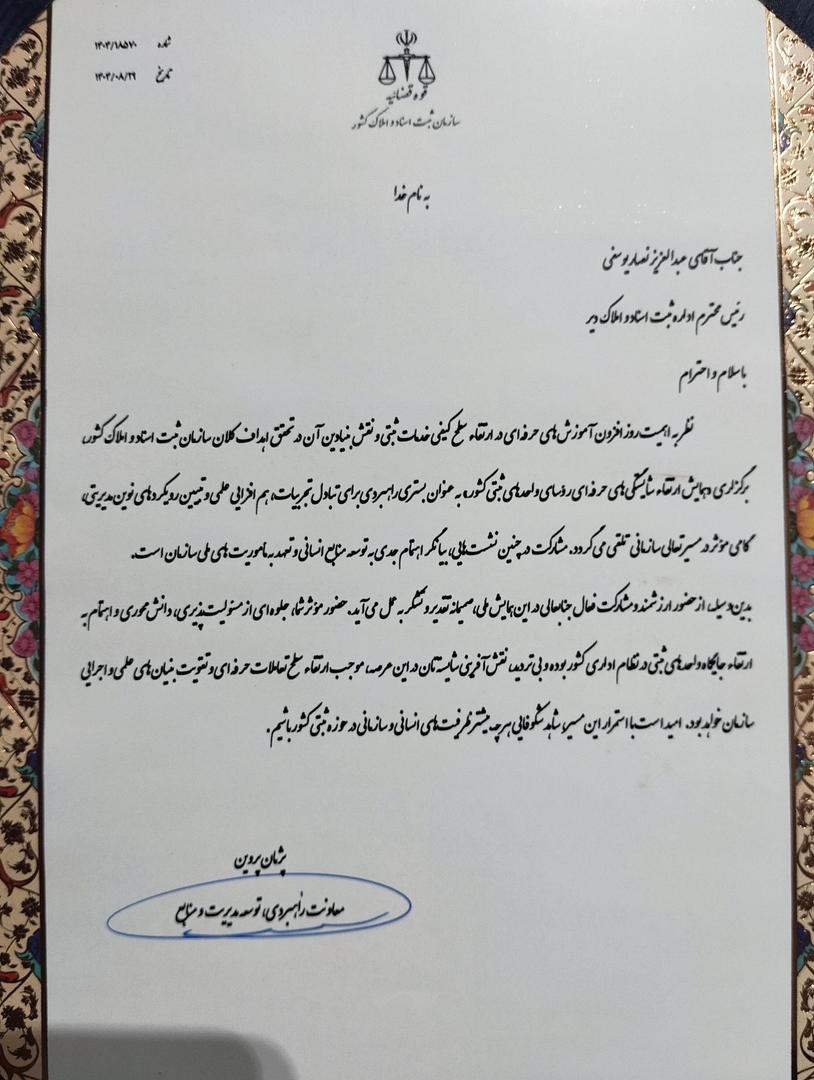 شماره ۱۴۰۴/۱۸۵۷۰
تاریخ ۱۴۰۴/۰۸/۲۹
قوه قضائیه
سازمان ثبت اسناد و املاک کشور
به نام خدا
جناب آقای عبدالعزیز نصار یوسفی
رئیس محترم اداره ثبت اسناد و املاک دیر
با سلام و احترام
نظر به اهمیت روز افزون آموزش های حرفه ای در ارتقاء سطح کیفی خدمات ثبتی و نقش بنیادین آن در تحقق اهداف کلان سازمان ثبت اسناد و املاک کشور،
برگزاری «همایش ارتقاء شایستگی های حرفه ای رؤسای واحدهای ثبتی کشور» به عنوان بستری راهبردی برای تبادل تجربیات، هم افزایی علمی و تبیین رویکردهای نوین مدیریتی،
گامی مؤثر در مسیر تعالی سازمانی تلقی می گردد. مشارکت در چنین نشست هایی، بیانگر اهتمام جدی به توسعه منابع انسانی و تعهد به ماموریت های ملی سازمان است.
بدین وسیله، از حضور ارزشمند و مشارکت فعال جنابعالی در این همایش ملی، صمیمانه تقدیر و تشکر به عمل می آید. حضور مؤثر شما، جلوه ای از مسئولیت پذیری، دانش محوری و اهتمام به
ارتقاء جایگاه واحدهای ثبتی در نظام اداری کشور بوده و بی تردید، نقش آفرینی شایسته تان در این عرصه، موجب ارتقاء سطح تعاملات حرفه ای و تقویت بنیان های علمی و اجرایی
سازمان خواهد بود. امید است با استمرار این مسیر، شاهد شکوفایی هرچه بیشتر ظرفیت های انسانی و سازمانی در حوزه ثبتی کشور باشیم.
پژمان پروین
معاونت راهبردی، توسعه مدیریت و منابع